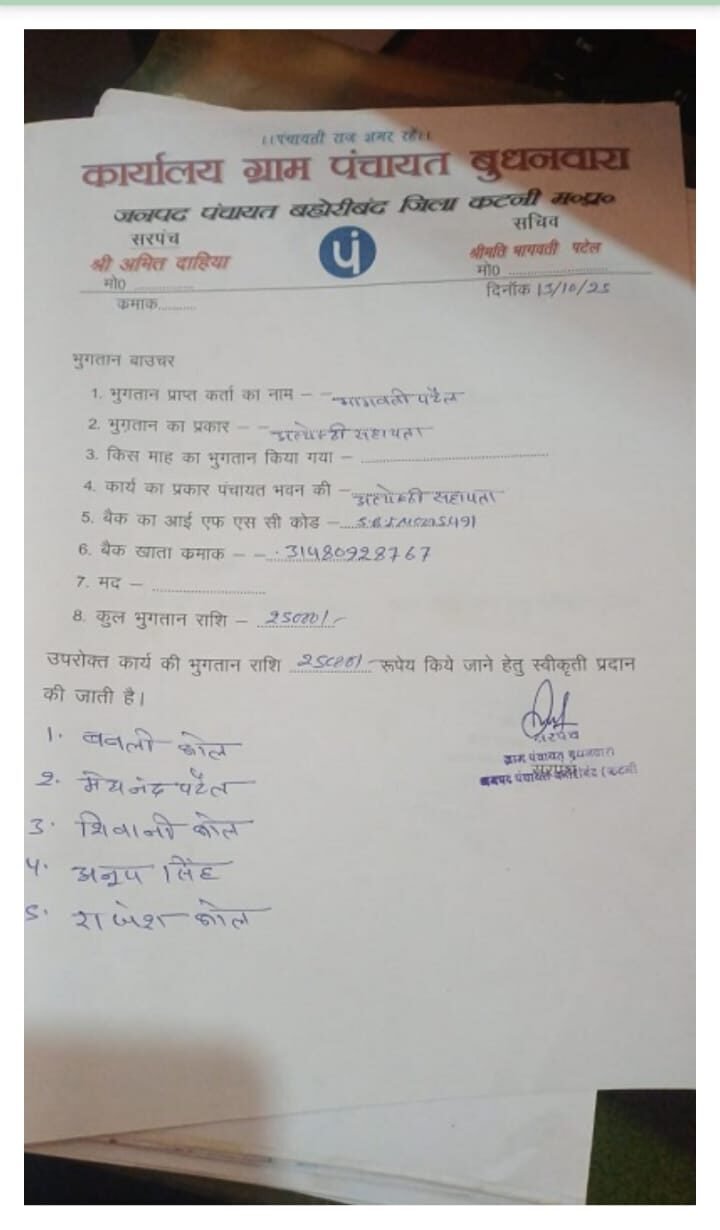 ।।पंचायती राज अमर रहें।।
कार्यालय ग्राम पंचायत बुधनवारा
जनपद पंचायत बहोरीबंद जिला कटनी म०प्र०
सरपंच
सचिव
पं
श्री अमित दाहिया
श्रीमति भागवती पटेल
मो0 ..............
मो0 ......................
कमाक..........
दिनॉक 15/10/25
भुगतान बाउचर
1. भुगतान प्राप्त कर्ता का नाम – – भागवती पटैल
2. भुग़तान का प्रकार – – अन्त्येष्ठी सहायता
3. किस माह का भुगतान किया गया – ......................................
4. कार्य का प्रकार पंचायत भवन की – अन्त्येष्ठी सहायता
5. बैक का आई एफ एस सी कोड –
6. बैक खाता कमाक – – 31480928767
7. मद – ........................
8. कुल भुगतान राशि – 25000/-
उपरोक्त कार्य की भुगतान राशि 25000/- रूपेय किये जाने हेतु स्वीकृती प्रदान
की जाती है।
1. बबली कोल
2. मेघनंद्र पटैल
3. शिवानी कोल
4. अनूप सिंह
5. राजेश कोल
सरपंच
ग्राम पंचायत बुधनवारा
सरपंच
जनपद पंचायत बहोरीबंद (कटनी